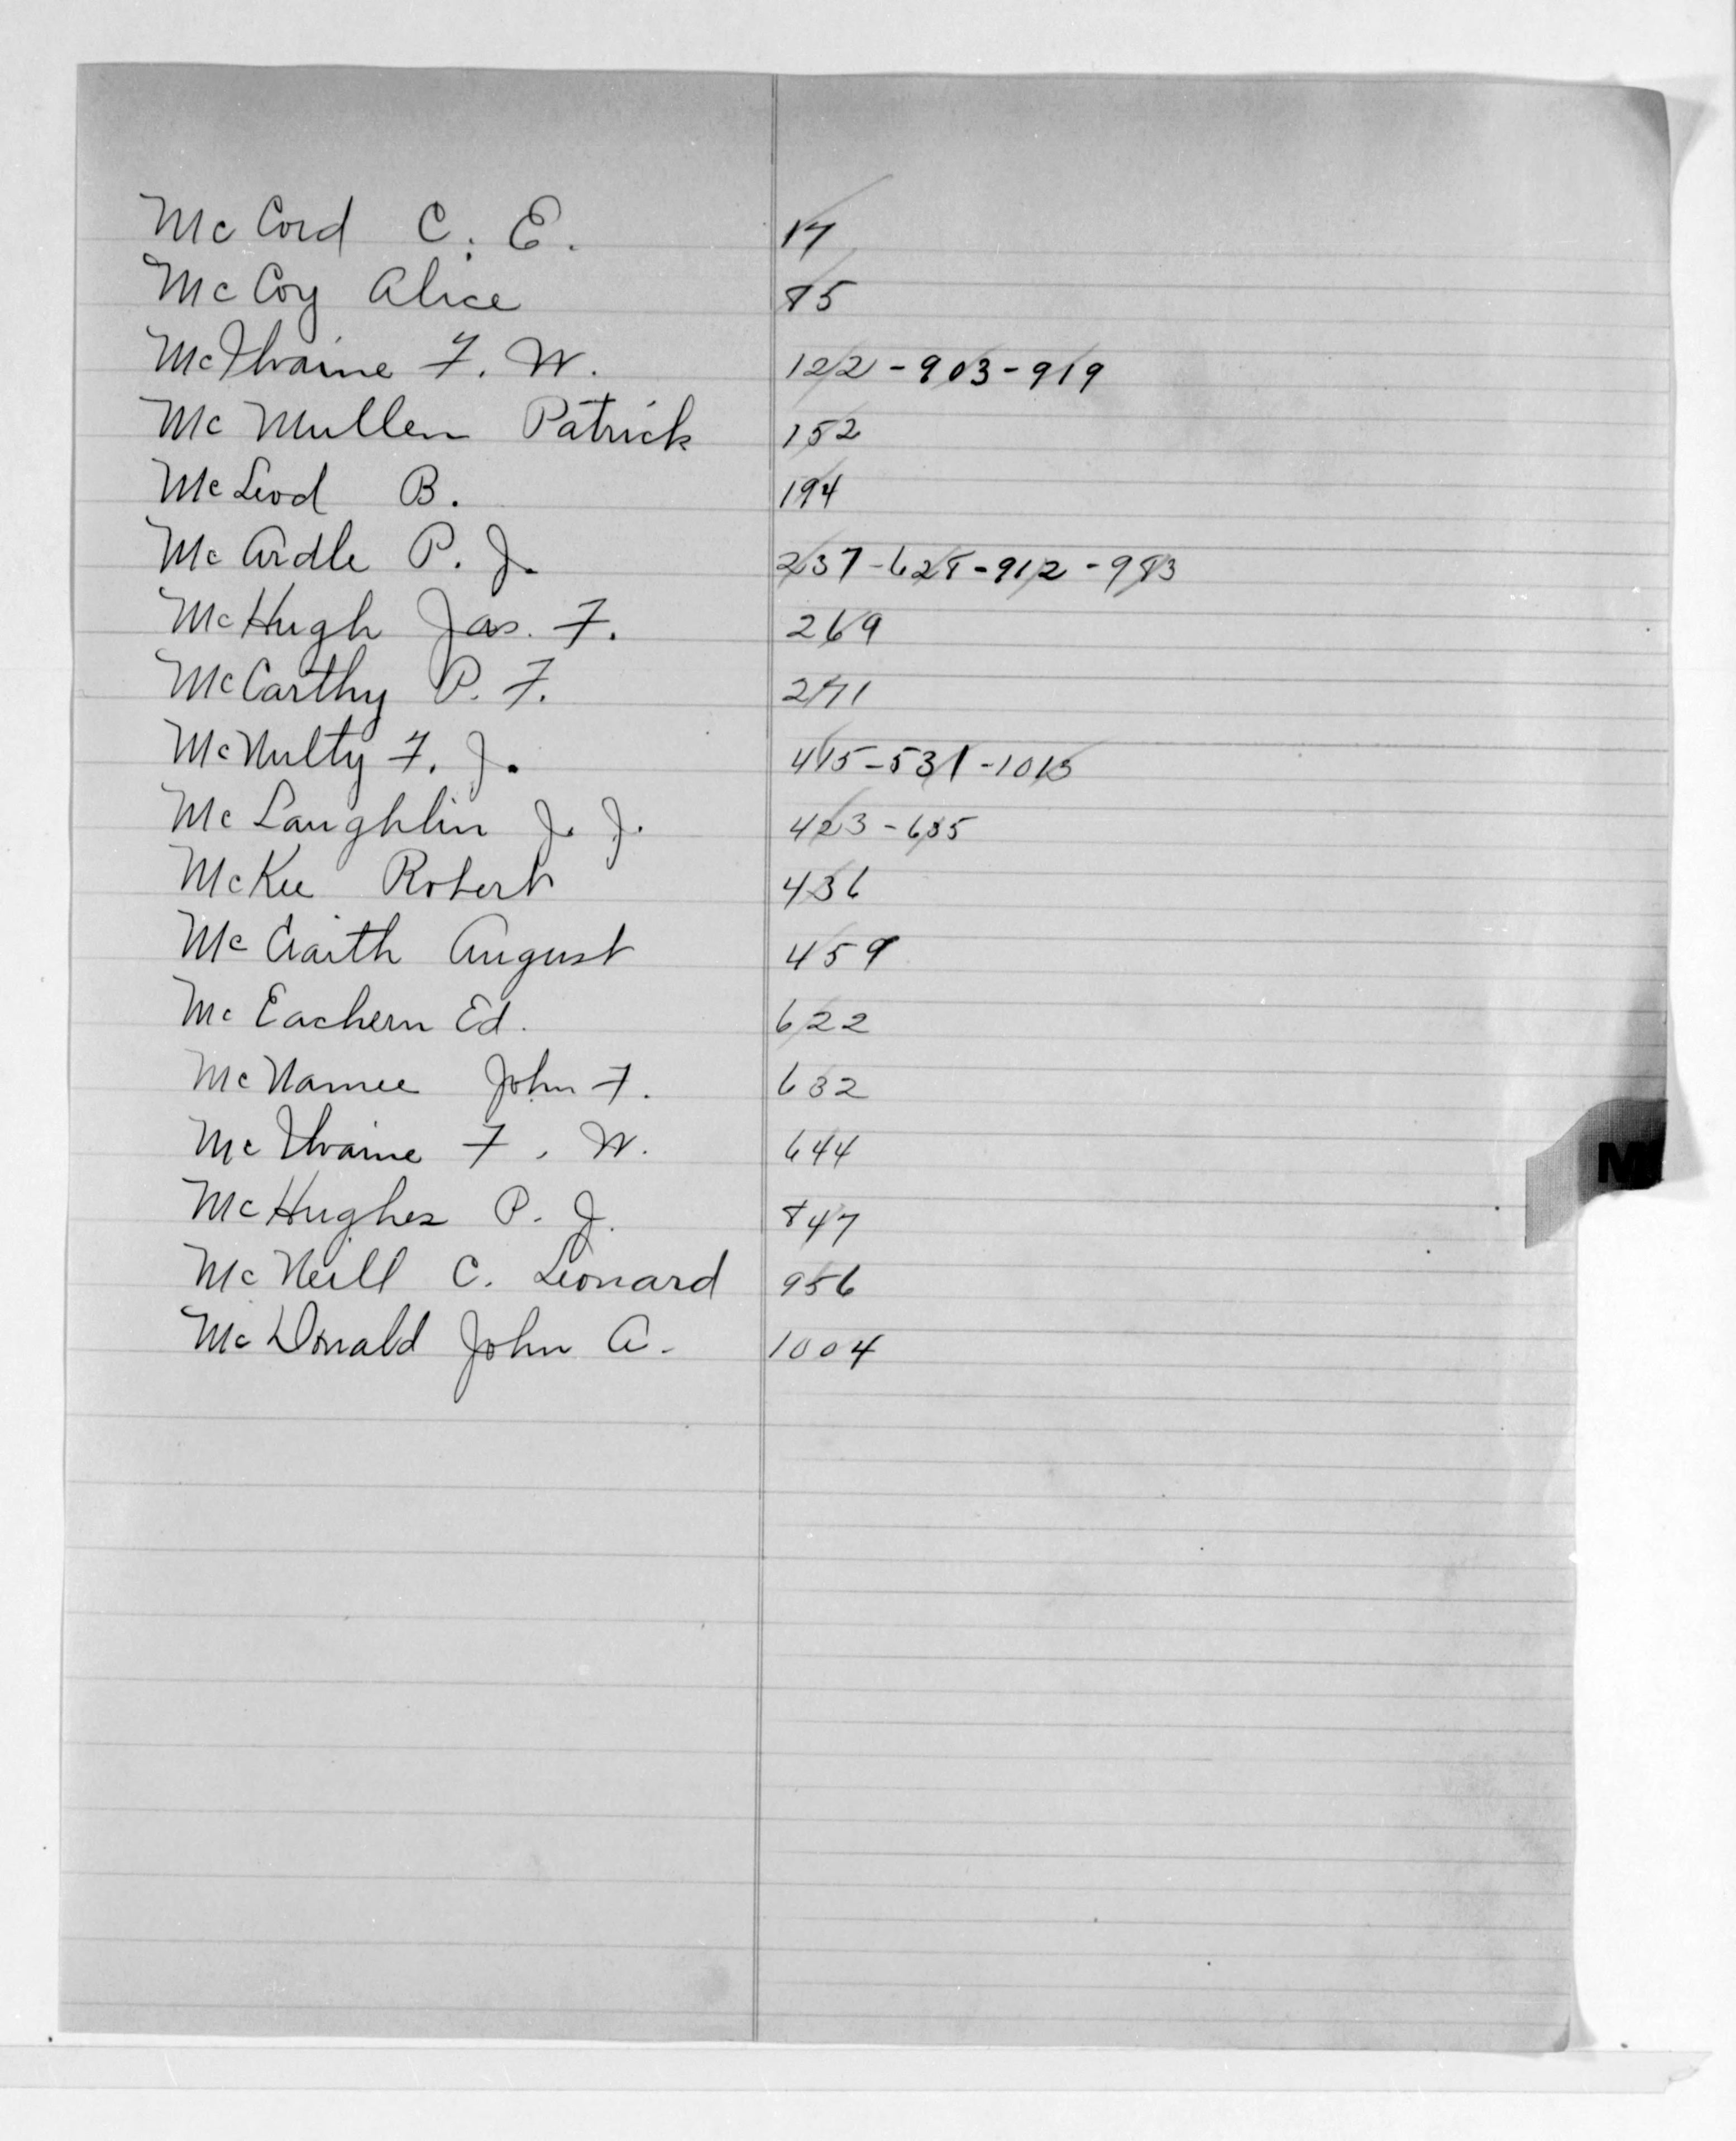 McCord C. E. 17
McCoy Alice 85
McIlvaine F. W. 122 - 903 - 919
McMullen Patrick 152
McLeod B. 194
McArdle P. J. 237 - 628 - 912 - 983
McHugh Jas. F. 269
McCarthy P. F. 271
McNulty F. J. 415 - 531 - 1015
McLaughlin J. J. 423 - 635
McKee Robert 436
McCraith August 459
McEachern Ed. 622
McNamee John F. 632
McIlvaine F. W. 644
M
McHughes P. J. 847
McNeill C. Leonard 956
McDonald John A. 1004